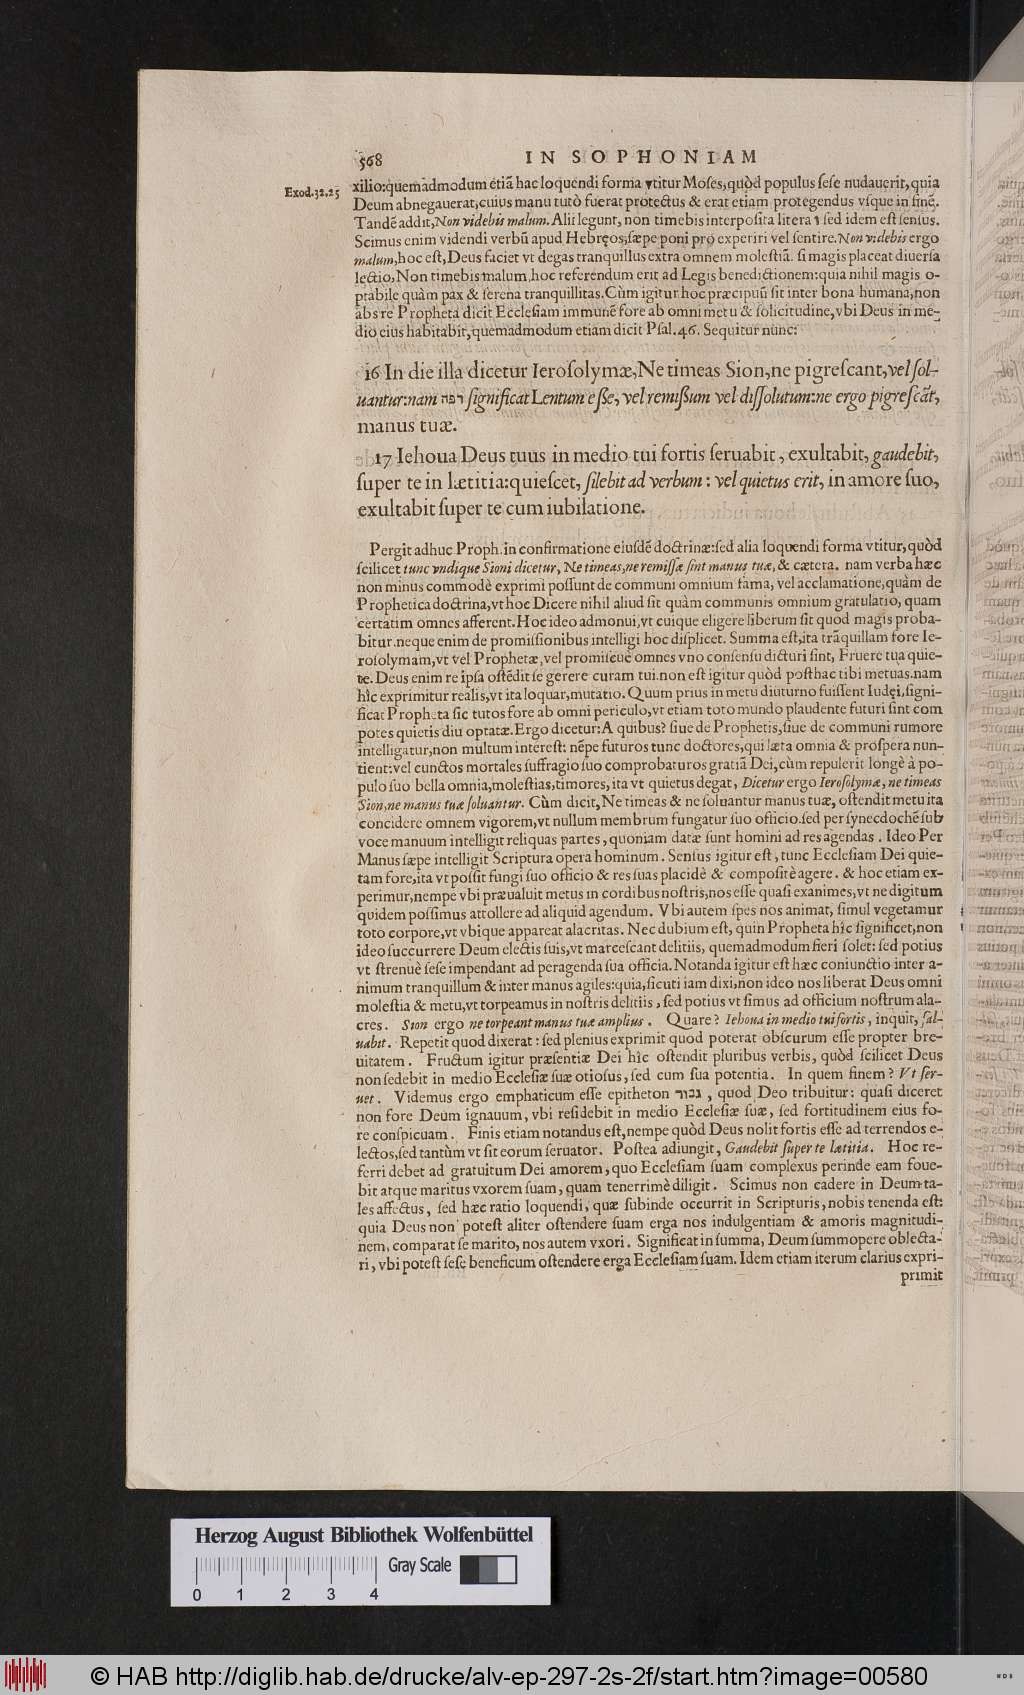 568
IN SOPHONIAM
Exod.32.25
xilio:quemadmodum etiã hac loquendi forma vtitur Moſes,quòd populus ſeſe nudauerit,quia
Deum abnegauerat,cuius manu tutò fuerat protectus & erat etiam protegendus vſque in finẽ.
Tandẽ addit,Non videbis malum.Alij legunt, non timebis interpoſita litera ו ſed idem eſt ſenſus.
Scimus enim videndi verbũ apud Hebręos,ſæpe poni pro experiri vel ſentire.Non videbis ergo
malum,hoc eſt,Deus faciet vt degas tranquillus extra omnem moleſtiã. ſi magis placeat diuerſa
lectio,Non timebis malum,hoc referendum erit ad Legis benedictionem:quia nihil magis o-
ptabile quàm pax & ſerena tranquillitas.Cùm igitur hoc præcipuũ ſit inter bona humana,non
abs re Propheta dicit Eccleſiam immunẽ fore ab omni metu & ſolicitudine,vbi Deus in me-
dio eius habitabit,quemadmodum etiam dicit Pſal.46. Sequitur nunc:
16 In die illa dicetur Ieroſolymæ,Ne timeas Sion,ne pigreſcant,vel ſol-
uantur:nam רפה ſignificat Lentum eſſe, vel remiſſum vel diſſolutum:ne ergo pigreſcãt,
manus tuæ.
17 Iehoua Deus tuus in medio tui fortis ſeruabit, exultabit, gaudebit,
ſuper te in lætitia:quieſcet, ſilebit ad verbum: vel quietus erit, in amore ſuo,
exultabit ſuper te cum iubilatione.
Pergit adhuc Proph.in confirmatione eiuſdẽ doctrinæ:ſed alia loquendi forma vtitur,quòd
ſcilicet tunc vndique Sioni dicetur, Ne timeas,ne remiſſæ ſint manus tuæ, & cætera. nam verba hæc
non minus commodè exprimi poſſunt de communi omnium fama, vel acclamatione,quàm de
Prophetica doctrina,vt hoc Dicere nihil aliud ſit quàm communis omnium gratulatio, quam
certatim omnes afferent.Hoc ideo admonui,vt cuique eligere liberum ſit quod magis proba-
bitur.neque enim de promiſſionibus intelligi hoc diſplicet. Summa eſt,ita trãquillam fore Ie-
roſolymam,vt vel Prophetæ,vel promiſcuè omnes vno conſenſu dicturi ſint, Fruere tua quie-
te.Deus enim re ipſa oſtẽdit ſe gerere curam tui.non eſt igitur quòd poſthac tibi metuas.nam
hîc exprimitur realis,vt ita loquar,mutatio.Quum prius in metu diuturno fuiſſent Iudęi,ſigni-
ficat Propheta ſic tutos fore ab omni periculo,vt etiam toto mundo plaudente futuri ſint com
potes quietis diu optatæ.Ergo dicetur:A quibus? ſiue de Prophetis,ſiue de communi rumore
intelligatur,non multum intereſt: nẽpe futuros tunc doctores,qui læta omnia & proſpera nun-
tient:vel cunctos mortales ſuffragio ſuo comprobaturos gratiã Dei,cùm repulerit longè à po-
pulo ſuo bella omnia,moleſtias,timores,ita vt quietus degat, Dicetur ergo Ieroſolymæ, ne timeas
Sion,ne manus tuæ ſoluantur. Cùm dicit,Ne timeas & ne ſoluantur manus tuæ, oſtendit metu ita
concidere omnem vigorem,vt nullum membrum fungatur ſuo officio.ſed per ſynecdochẽ ſub
voce manuum intelligit reliquas partes, quoniam datæ ſunt homini ad res agendas. Ideo Per
Manus ſæpe intelligit Scriptura opera hominum. Senſus igitur eſt, tunc Eccleſiam Dei quie-
tam fore,ita vt poſſit fungi ſuo officio & res ſuas placidè & compoſitè agere. & hoc etiam ex-
perimur,nempe vbi præualuit metus in cordibus noſtris,nos eſſe quaſi exanimes,vt ne digitum
quidem poſſimus attollere ad aliquid agendum. Vbi autem ſpes nos animat, ſimul vegetamur
toto corpore,vt vbique appareat alacritas. Nec dubium eſt, quin Propheta hîc ſignificet,non
ideo ſuccurrere Deum electis ſuis,vt marceſcant delitiis, quemadmodum fieri ſolet: ſed potius
vt ſtrenuè ſeſe impendant ad peragenda ſua officia.Notanda igitur eſt hæc coniunctio inter a-
nimum tranquillum & inter manus agiles:quia,ſicuti iam dixi,non ideo nos liberat Deus omni
moleſtia & metu,vt torpeamus in noſtris delitiis, ſed potius vt ſimus ad officium noſtrum ala-
cres. Sion ergo ne torpeant manus tuæ amplius. Quare? Iehoua in medio tui fortis, inquit, ſal-
uabit. Repetit quod dixerat: ſed plenius exprimit quod poterat obſcurum eſſe propter bre-
uitatem. Fructum igitur præſentiæ Dei hîc oſtendit pluribus verbis, quòd ſcilicet Deus
non ſedebit in medio Eccleſiæ ſuæ otioſus, ſed cum ſua potentia. In quem finem? Vt ſer-
uet. Videmus ergo emphaticum eſſe epitheton גבור, quod Deo tribuitur: quaſi diceret
non fore Deum ignauum, vbi reſidebit in medio Eccleſiæ ſuæ, ſed fortitudinem eius fo-
re conſpicuam. Finis etiam notandus eſt,nempe quòd Deus nolit fortis eſſe ad terrendos e-
lectos,ſed tantùm vt ſit eorum ſeruator. Poſtea adiungit, Gaudebit ſuper te lætitia. Hoc re-
ferri debet ad gratuitum Dei amorem, quo Eccleſiam ſuam complexus perinde eam foue-
bit atque maritus vxorem ſuam, quam tenerrimè diligit. Scimus non cadere in Deum ta-
les affectus, ſed hæc ratio loquendi, quæ ſubinde occurrit in Scripturis, nobis tenenda eſt:
quia Deus non poteſt aliter oſtendere ſuam erga nos indulgentiam & amoris magnitudi-
nem, comparat ſe marito, nos autem vxori. Significat in ſumma, Deum ſummopere oblecta-
ri, vbi poteſt ſeſe beneficum oſtendere erga Eccleſiam ſuam. Idem etiam iterum clarius expri-
primit
Herzog August Bibliothek Wolfenbüttel
Gray Scale
0 1 2 3 4
© HAB http://diglib.hab.de/drucke/alv-ep-297-2s-2f/start.htm?image=00580